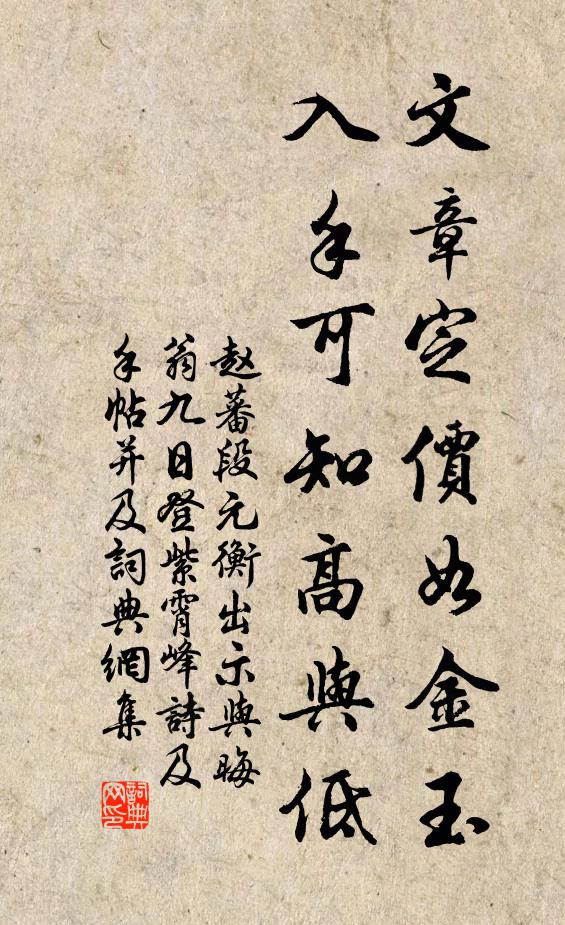 文章定價如金玉
入手可知高與低
赵蕃段元衡出示與晦
翁九日登紫霄峰詩及
手帖并及詞典網集
詞典
网印